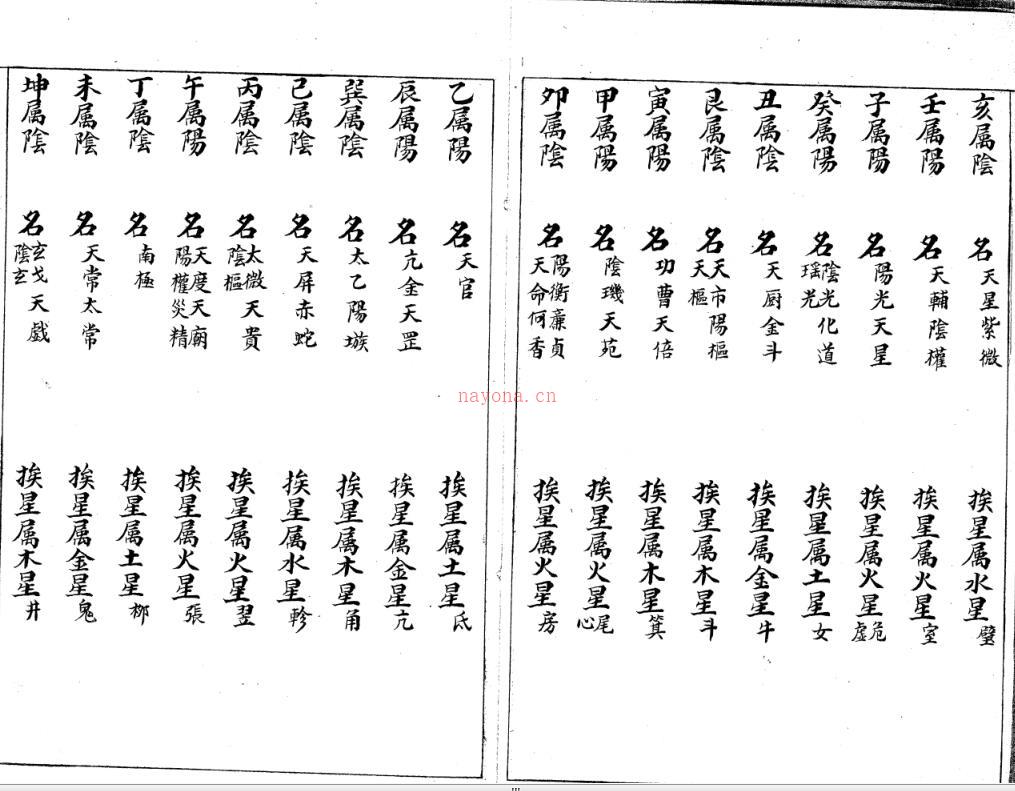 亥属陰 名天星紫微 挨星属水星壁
壬属陽 名天輔陰權 挨星属火星室
子属陽 名陽光天星 挨星属火星危虛
癸属陽 名陰光化道瑤光 挨星属土星女
丑属陰 名天厨金斗 挨星属金星牛
艮属陰 名天市陽樞天樞 挨星属木星斗
寅属陽 名功曹天倍 挨星属木星箕
甲属陽 名陰璣天苑 挨星属火星尾心
卯属陰 名陽衡亷貞天命何香 挨星属火星房
乙属陽 名天官 挨星属土星氐
辰属陽 名亢金天罡 挨星属金星亢
巽属陰 名太乙陽璇 挨星属木星角
巳属陰 名天屏赤蛇 挨星属水星軫
丙属陽 名太微天貴陰樞 挨星属火星翌
午属陽 名天度天廟陽權災精 挨星属火星張
丁属陰 名南極 挨星属土星柳
未属陰 名天常太常 挨星属金星鬼
坤属陰 名玄戈天戲陰玄 挨星属木星井
nayona.cn